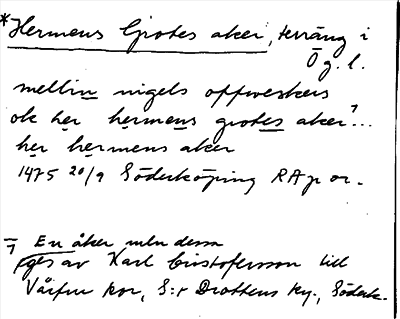 *Hermens Grotes aker, terräng i
Ög. l.
mellin nigels oppweskers
ok her hermens grotes aker⁷...
her hermens aker
1475 20/9 Söderköping RAp or.
⁷ En åker mln dessa
ges av Karl Cristofersson till
Vårfru kor, S:t Drottens ky., Söderk.